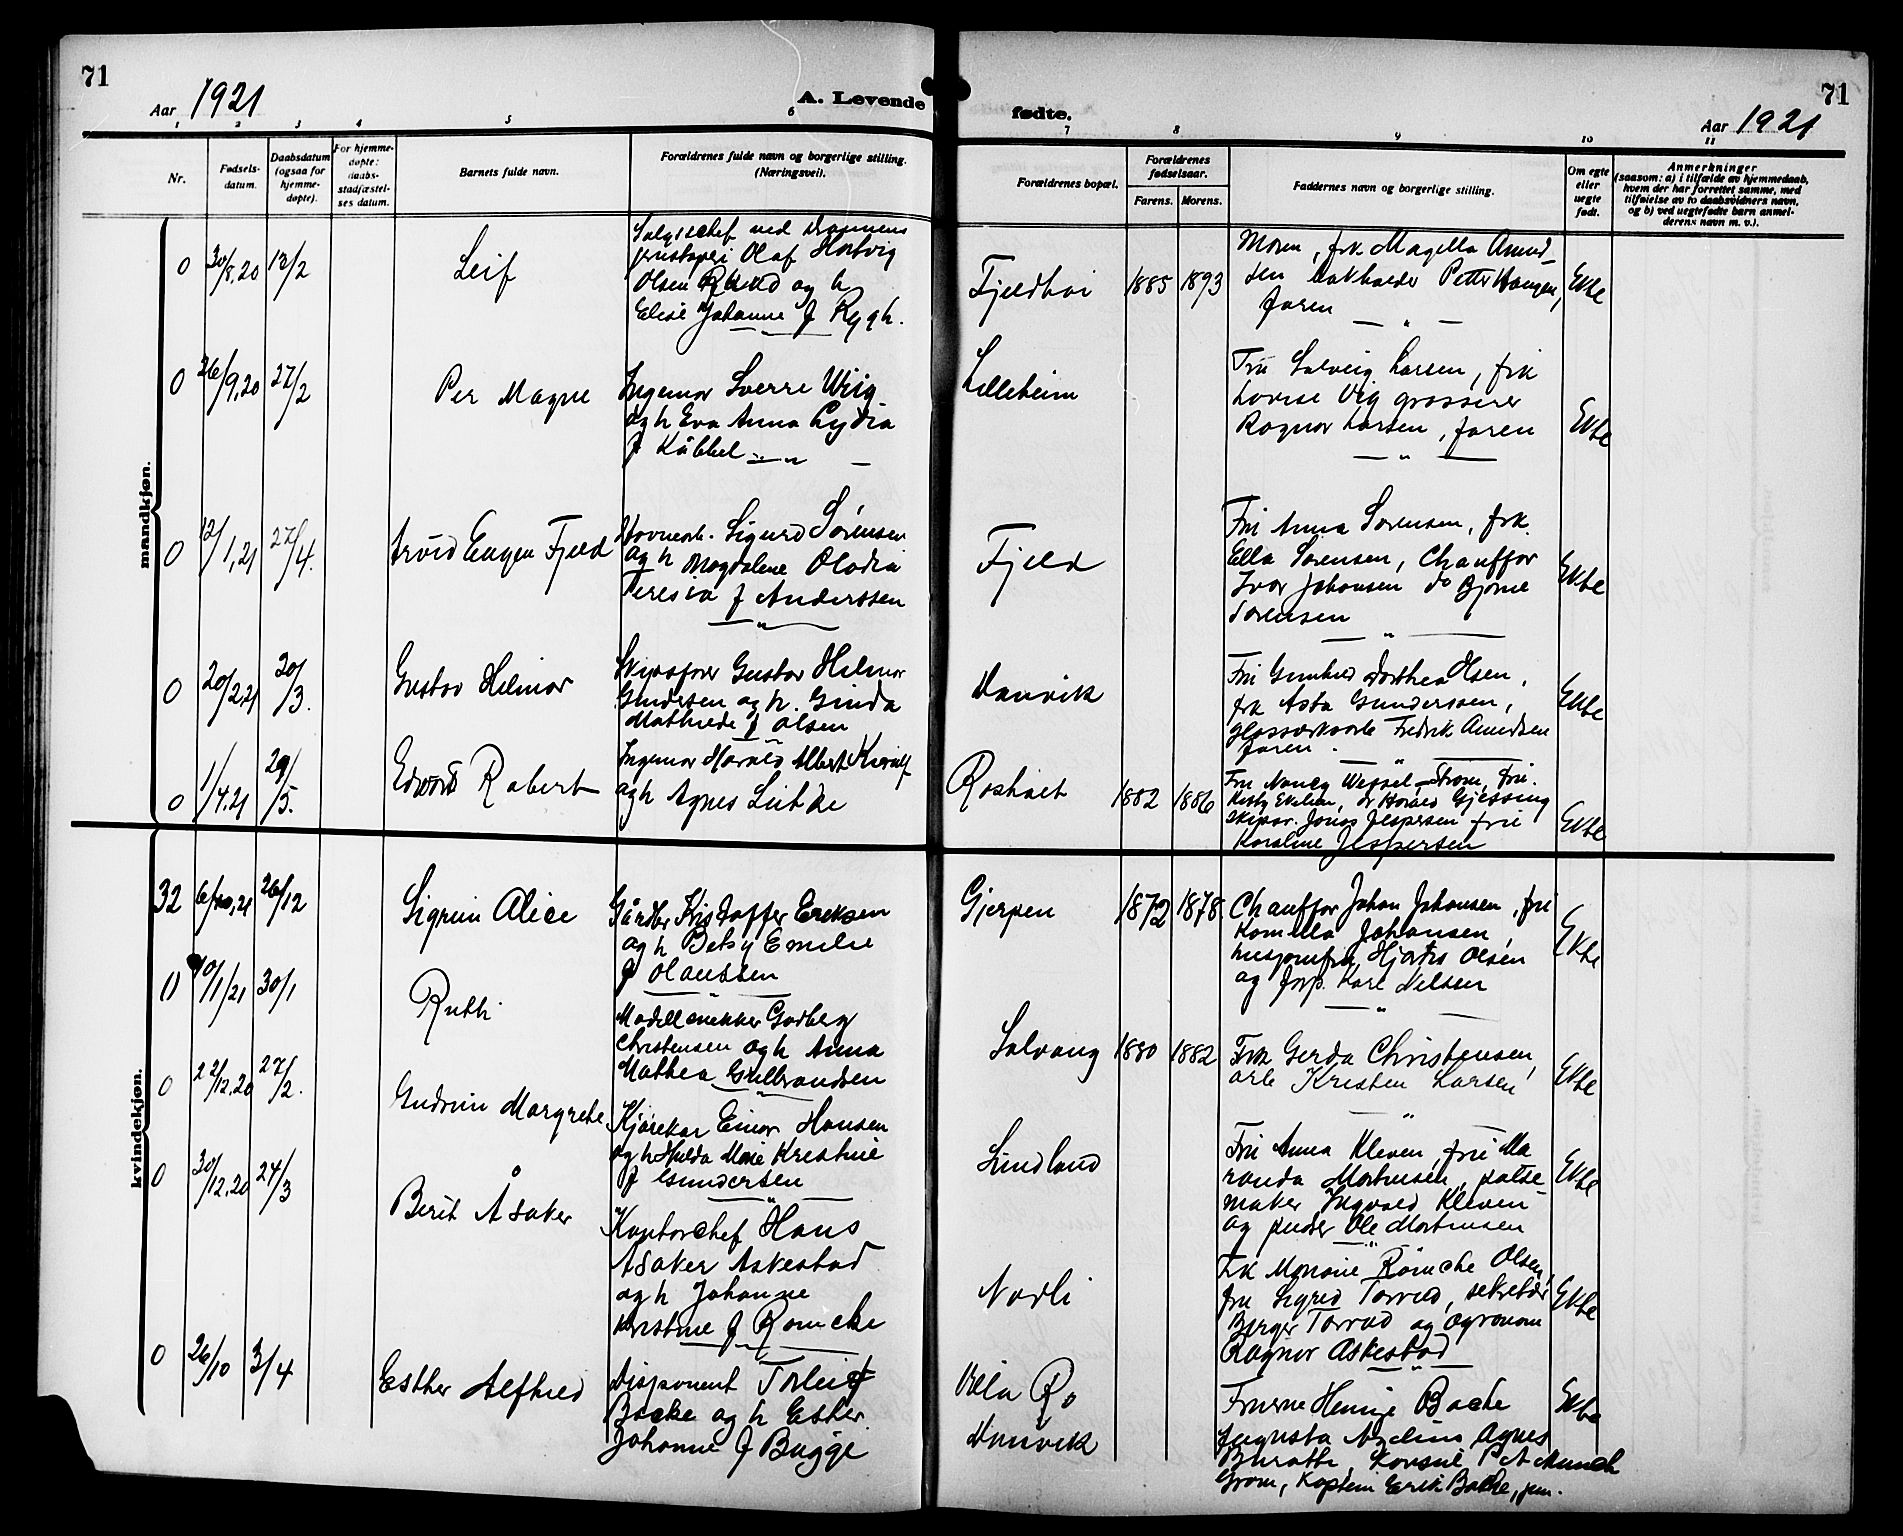 71
Aar 1921
A. Levende
fødte.
Aar 1921
71
1 2 3 4 5 6 7 8 9 10 11
Nr.
Fødsels-
datum.
Daabsdatum
(ogsaa for
hjemme-
døpte).
For hjemme-
døpte:
daabs-
stadfæstel-
ses datum.
Barnets fulde navn.
Forældrenes fulde navn og borgerlige stilling.
(Næringsvei).
Forældrenes bopæl.
Forældrenes
fødselsaar.
Farens. Morens.
Faddernes navn og borgerlige stilling.
Om egte
eller
uegte
født.
Anmerkninger
(saasom: a) i tilfælde av hjemmedaab,
hvem der har forrettet samme, med
tilføielse av to daabsvidners navn,
og b) ved uegtefødte barn anmel-
derens navn m. v.).
mandkjøn.
0 30/8.20 13/2
Leif
Salgschef ved Drammens
jernstøperi Olaf Hartvig
Olsen Ruud og h
Elise Johanne f Rygh.
Fjeldhøi
1885 1893
Moren, frk Magella Amund-
sen Petter Haugen,
faren
Ekte
0 26/9.20 27/2
Per Magne
Ingeniør Sverre Wiig
og h Eva Anna Lydia
f Kübbel
Lilleheim
Fru Solveig Larsen, frk
Lovise Vig grosserer
Ragnar Larsen, faren
Ekte
0 12/1.21 27/4.
Arvid Eugen Fjeld
Havnearb. Sigurd Sørensen
og h Magdalene Olodia
Teresia f Anderssen
Fjeld
Fru Anna Sørensen, frk
Ella Sørensen, Chauffør
Ivar Johansen do Bjarne
Sørensen
Ekte
0 20/2.21 20/3.
Gustav Hilmar
Skipsfører Gustav Hilmar
Gundersen og h. Ginda
Mathilde f Olsen
Danvik
Fru Gunhild Dorthea Olsen,
frk Asta Gunderssen,
glassverksarb Fredrik Amundsen
faren.
Ekte
0 1/4.21 29/5.
Edvard Robert
Ingeniør Harald Albert
og h Agnes
Roshaet
1882 1886
Fru Nancy Wessel-Strøm, fru.
dr Harald Gjessing
skipsr. Jonas Jespersen fru
Karoline Jespersen
Ekte
kvindekjøn.
32 6/10.21 26/12
Sigrun Alice
Gårdbr Kristoffer Eriksen
og h Betsy Emilie
f Olaussen
Gjerpen
1872 1878
Chauffør Johan Johansen, fru
Kamilla Johansen,
husjomfru Hjørdis Olsen
og forp. Karl Nilsen
Ekte
0 10/1/21 30/1
Ruth
Modellsnekker Godberg
Christensen og h Anna
Mathea Gulbrandsen
Solvang
1880 1882
Frk Gerda Christensen,
arb Kristen Larsen
Ekte
0 22/12.20 27/2.
Gudrun Margrethe
Kjørekar Einar Hansen
og h Hulda Marie Kristine
f Gundersen
Lundland
Fru Anna Kleven, fru Ma
randa Mortensen, pølse
maker Ingvald Kleven
og pudser Ole Mortensen
Ekte
0 30/12.20 27/3
Berit Åsaker
Kontorchef Hans
Asaker Askestad
og h Johanne
Kristine f Romcke
Nordli
Frk Monanie Römcke Olsen,
fru Sigrid Torrud, sekretær
Birger Torrud og agronom
Ragnar Askestad
Ekte
0 26/10 3/4
Esther Alfhild
Disponent Torleif
Bache og h Esther
Johanne f Bugge
Villa Ro
Danvik
Fruerne Henny Bache
Augusta Agnes
Konsul P. A Munch
Gram, Kaptein Erik Bache, jun.
Ekte